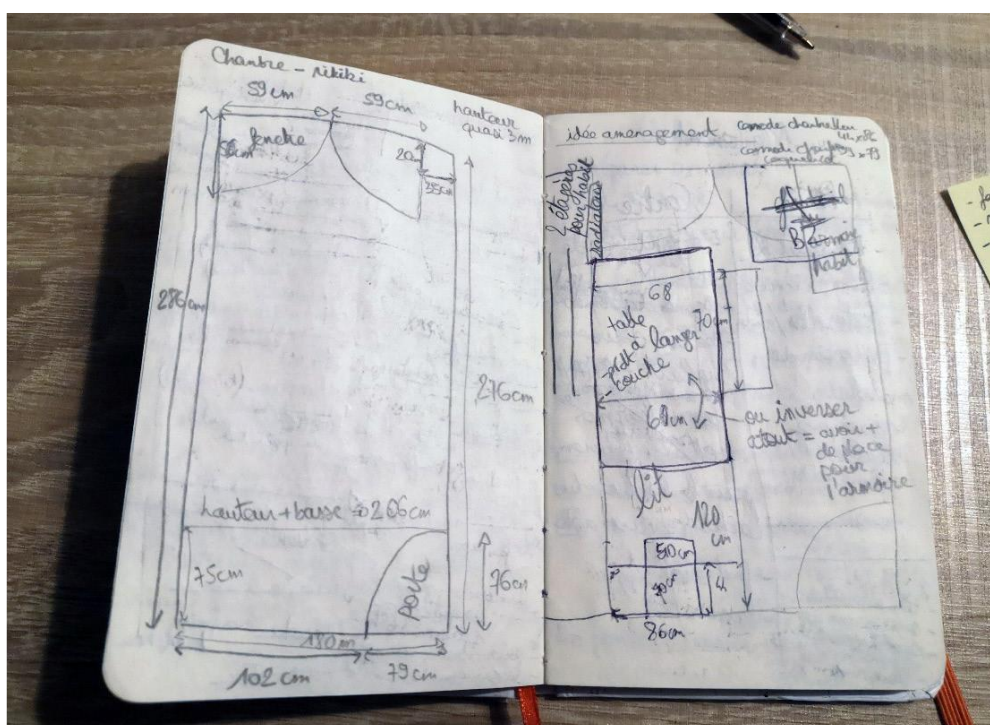 Chambre - rikiki
59cm
59cm
hauteur
quasi 3m
fenêtre
20
35cm
276cm
276cm
hauteur + basse = 206cm
75cm
porte
76cm
180m
102cm
79cm
idée amenagement
comode
2 étagères
pour habit
radiateur
habit
68
table
à langer
couche
70cm
ou inverser
atout = avoir +
de place
pour
l'armoire
lit
120
cm
50cm
86cm